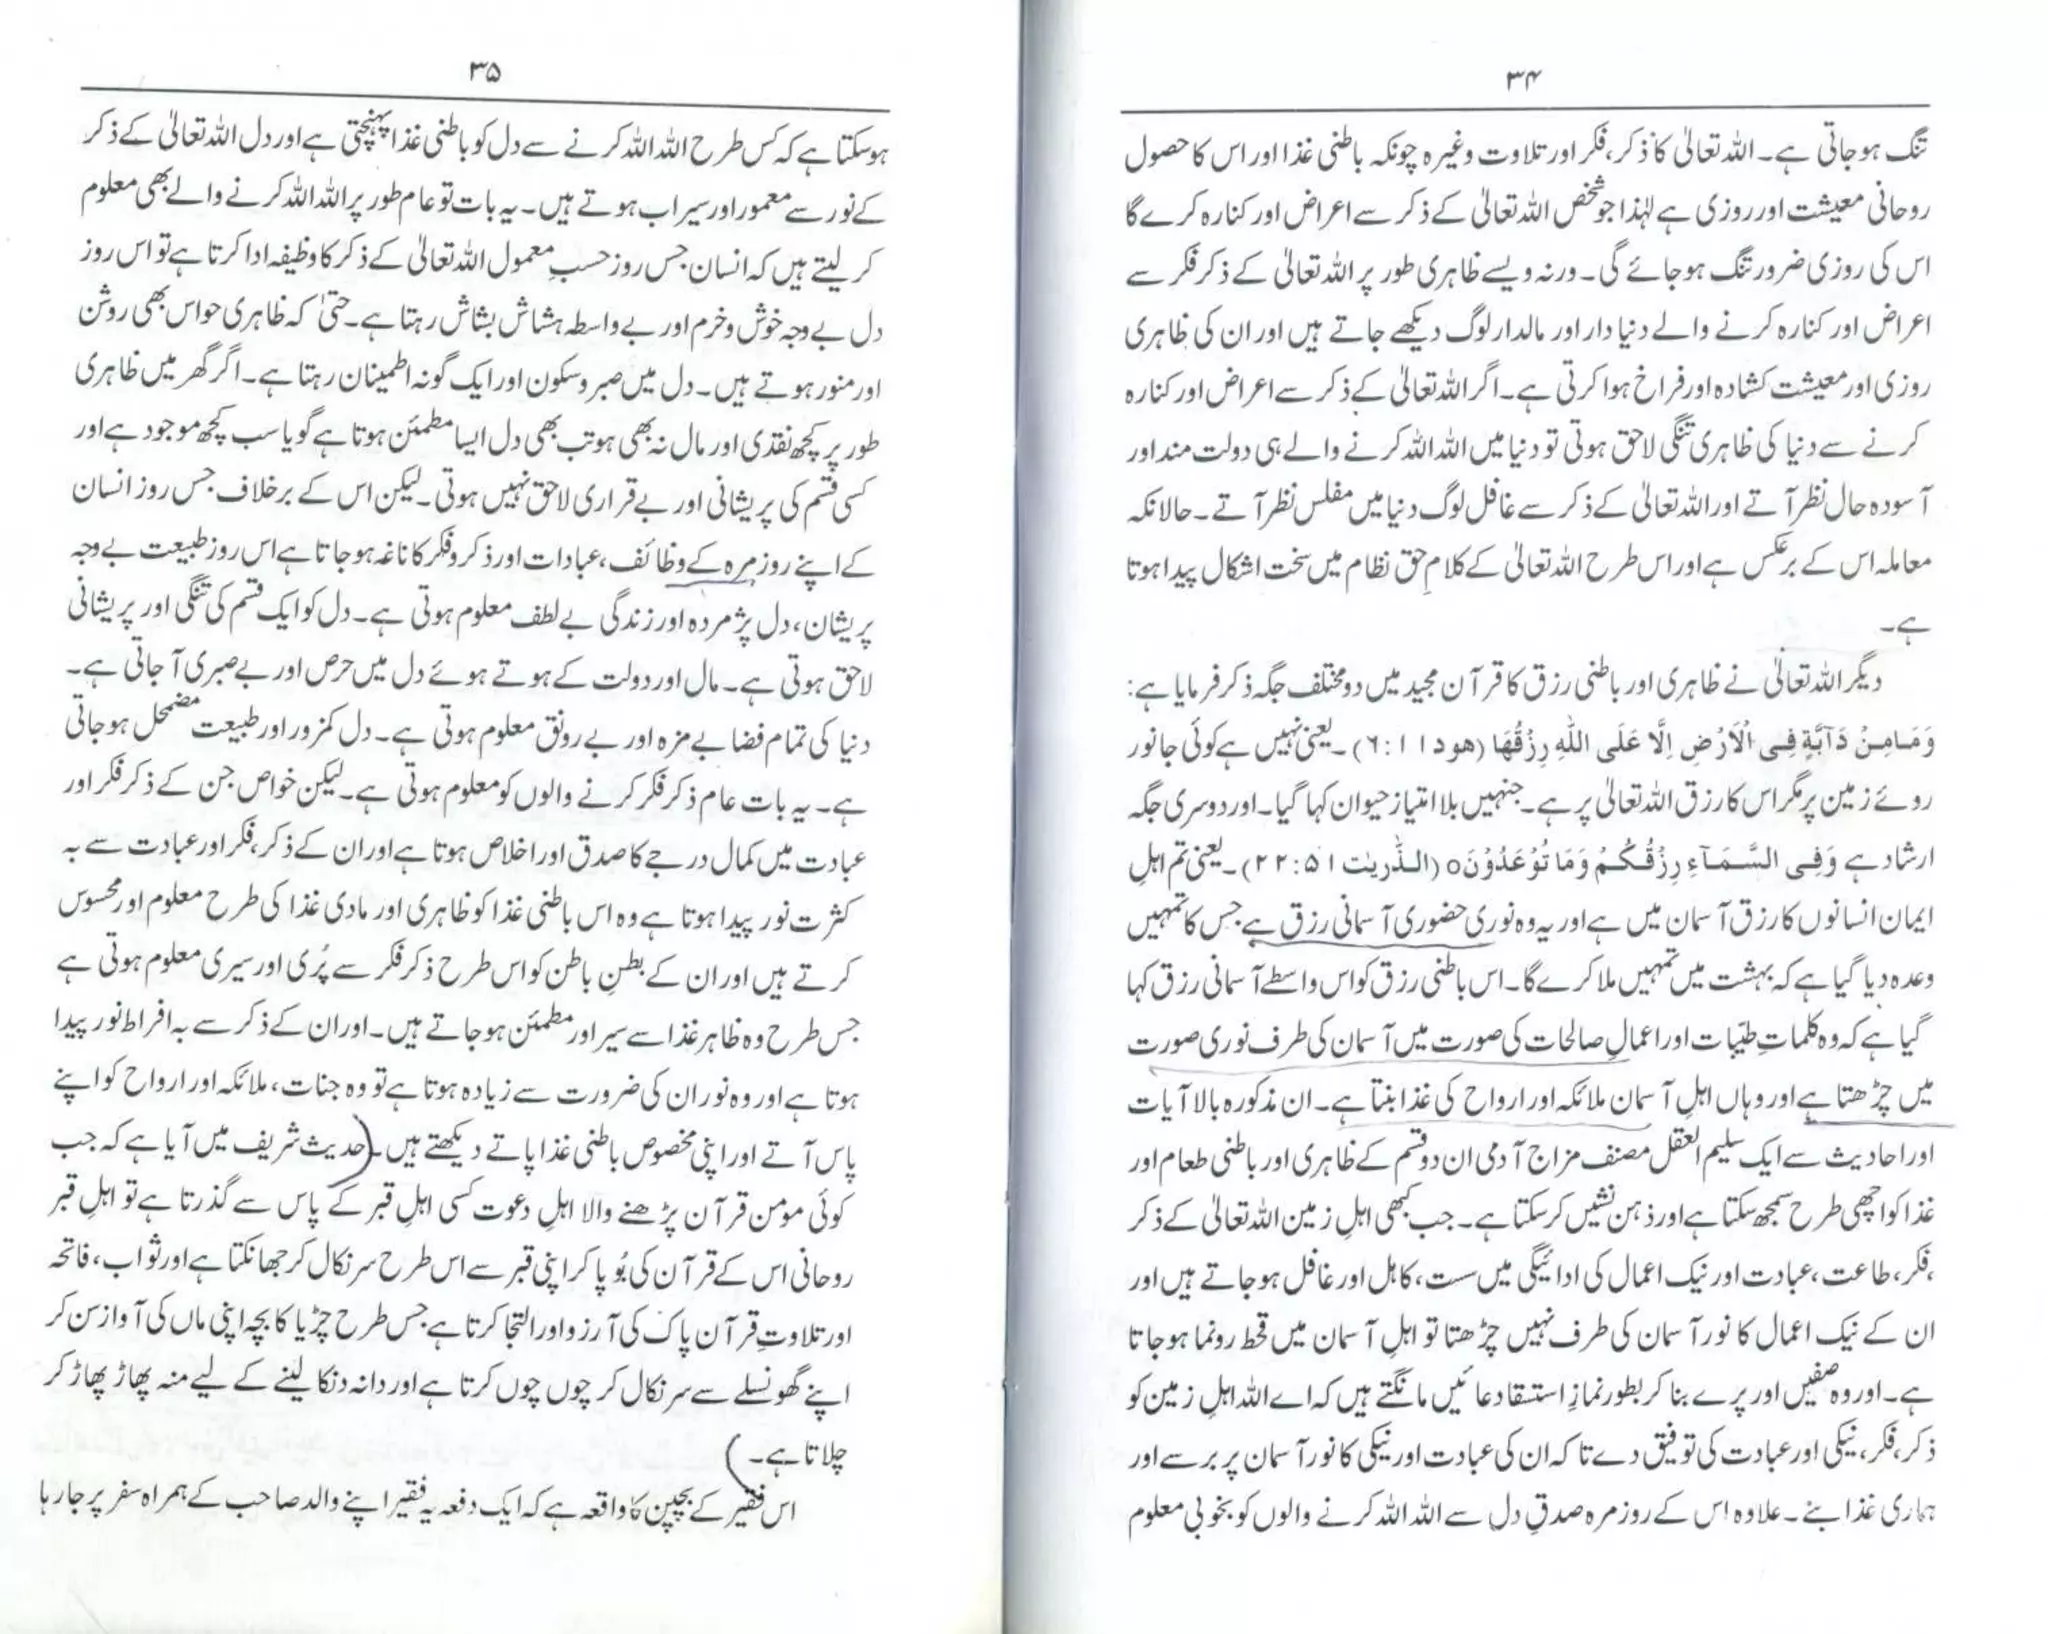 ۳۴
تنگ ہوجاتی ہے۔ اللہ تعالیٰ کا ذکر، فکر اور تلاوت وغیرہ چونکہ باطنی غذا اور اس کا حصول
روحانی معیشت اور روزی ہے لہٰذا جو شخص اللہ تعالیٰ کے ذکر سے اعراض اور کنارہ کرے گا
اس کی روزی ضرور تنگ ہوجائے گی۔ ورنہ ویسے ظاہری طور پر اللہ تعالیٰ کے ذکر فکر سے
اعراض اور کنارہ کرنے والے دنیا دار اور مالدار لوگ دیکھے جاتے ہیں اور ان کی ظاہری
روزی اور معیشت کشادہ اور فراخ ہوا کرتی ہے۔ اگر اللہ تعالیٰ کے ذکر سے اعراض اور کنارہ
کرنے سے دنیا کی ظاہری تنگی لاحق ہوتی تو دنیا میں اللہ اللہ کرنے والے ہی دولت مند اور
آسودہ حال نظر آتے اور اللہ تعالیٰ کے ذکر سے غافل لوگ دنیا میں مفلس نظر آتے۔ حالانکہ
معاملہ اس کے برعکس ہے اور اس طرح اللہ تعالیٰ کے کلامِ حق نظام میں سخت اشکال پیدا ہوتا
ہے۔
دیگر اللہ تعالیٰ نے ظاہری اور باطنی رزق کا قرآن مجید میں دو مختلف جگہ ذکر فرمایا ہے:
وَمَامِنْ دَآبَّةٍ فِی الْاَرْضِ اِلَّا عَلَی اللّٰهِ رِزْقُهَا (هود ۱۱:۶)۔ یعنی نہیں ہے کوئی جانور
روئے زمین پر مگر اس کا رزق اللہ تعالیٰ پر ہے۔ جنہیں بلا امتیاز حیوان کہا گیا۔ اور دوسری جگہ
ارشاد ہے وَفِی السَّمَآءِ رِزْقُکُمْ وَمَا تُوْعَدُوْنَ٥ (الذّٰریٰت ۵۱:۲۲)۔ یعنی تم اہلِ
ایمان انسانوں کا رزق آسمان میں ہے اور یہ وہ نوری حضوری آسمانی رزق ہے جس کا تمہیں
وعدہ دیا گیا ہے کہ بہشت میں تمہیں ملا کرے گا۔ اس باطنی رزق کو اس واسطے آسمانی رزق کہا
گیا ہے کہ وہ کلماتِ طیّبات اور اعمالِ صالحات کی صورت میں آسمان کی طرف نوری صورت
میں چڑھتا ہے اور وہاں اہلِ آسمان ملائکہ اور ارواح کی غذا بنتا ہے۔ ان مذکورہ بالا آیات
اور احادیث سے ایک سلیم العقل مصنف مزاج آدمی ان دو قسم کے ظاہری اور باطنی طعام اور
غذا کو اچھی طرح سمجھ سکتا ہے اور ذہن نشیں کر سکتا ہے۔ جب کبھی اہلِ زمین اللہ تعالیٰ کے ذکر
،فکر، طاعت، عبادت اور نیک اعمال کی ادائیگی میں سست، کاہل اور غافل ہوجاتے ہیں اور
ان کے نیک اعمال کا نور آسمان کی طرف نہیں چڑھتا تو اہلِ آسمان میں قحط رونما ہوجاتا
ہے۔ اور وہ صفیں اور پرے بنا کر بطور نمازِ استسقا دعائیں مانگتے ہیں کہ اے اللہ اہلِ زمین کو
ذکر، فکر، نیکی اور عبادت کی توفیق دے تاکہ ان کی عبادت اور نیکی کا نور آسمان پر برسے اور
ہماری غذا بنے۔ علاوہ اس کے روزمرہ صدقِ دل سے اللہ اللہ کرنے والوں کو بخوبی معلوم
۳۵
ہوسکتا ہے کہ کس طرح اللہ اللہ کرنے سے دل کو باطنی غذا پہنچتی ہے اور دل اللہ تعالیٰ کے ذکر
کے نور سے معمور اور سیراب ہوتے ہیں۔ یہ بات تو عام طور پر اللہ اللہ کرنے والے بھی معلوم
کر لیتے ہیں کہ انسان جس روز حسبِ معمول اللہ تعالیٰ کے ذکر کا وظیفہ ادا کرتا ہے تو اس روز
دل بے وجہ خوش و خرم اور بے واسطہ ہشاش بشاش رہتا ہے۔ حتیٰ کہ ظاہری حواس بھی روشن
اور منور ہوتے ہیں۔ دل میں صبر و سکون اور ایک گونہ اطمینان رہتا ہے۔ اگر گھر میں ظاہری
طور پر کچھ نقدی اور مال نہ بھی ہو تب بھی دل ایسا مطمئن ہوتا ہے گویا سب کچھ موجود ہے اور
کسی قسم کی پریشانی اور بے قراری لاحق نہیں ہوتی۔ لیکن اس کے برخلاف جس روز انسان
کے اپنے روزمرہ کے وظائف، عبادات اور ذکر و فکر کا ناغہ ہوجاتا ہے اس روز طبیعت بے وجہ
پریشان، دل پژمردہ اور زندگی بے لطف معلوم ہوتی ہے۔ دل کو ایک قسم کی تنگی اور پریشانی
لاحق ہوتی ہے۔ مال اور دولت کے ہوتے ہوئے دل میں حرص اور بے صبری آ جاتی ہے۔
دنیا کی تمام فضا بے مزہ اور بے رونق معلوم ہوتی ہے۔ دل کمزور اور طبیعت مضمحل ہوجاتی
ہے۔ یہ بات عام ذکر فکر کرنے والوں کو معلوم ہوتی ہے۔ لیکن خواص جن کے ذکر فکر اور
عبادت میں کمال درجے کا صدق اور اخلاص ہوتا ہے اور ان کے ذکر، فکر اور عبادت سے بہ
کثرت نور پیدا ہوتا ہے وہ اس باطنی غذا کو ظاہری اور مادی غذا کی طرح معلوم اور محسوس
کرتے ہیں اور ان کے بطنِ باطن کو اس طرح ذکر فکر سے پُری اور سیری معلوم ہوتی ہے
جس طرح وہ ظاہر غذا سے سیر اور مطمئن ہوجاتے ہیں۔ اور ان کے ذکر سے بہ افراط نور پیدا
ہوتا ہے اور وہ نور ان کی ضرورت سے زیادہ ہوتا ہے تو وہ جنات، ملائکہ اور ارواح کو اپنے
پاس آتے اور اپنی مخصوص باطنی غذا پاتے دیکھتے ہیں۔ (حدیث شریف میں آیا ہے کہ جب
کوئی مومن قرآن پڑھنے والا اہلِ دعوت کسی اہلِ قبر کے پاس سے گذرتا ہے تو اہلِ قبر
روحانی اس کے قرآن کی بُو پا کر اپنی قبر سے اس طرح سر نکال کر جھانکتا ہے اور ثواب، فاتحہ
اور تلاوتِ قرآن پاک کی آرزو اور التجا کرتا ہے جس طرح چڑیا کا بچہ اپنی ماں کی آواز سن کر
اپنے گھونسلے سے سر نکال کر چوں چوں کرتا ہے اور دانہ دنکا لینے کے لیے منہ پھاڑ پھاڑ کر
چلاتا ہے۔)
اس فقیر کے بچپن کا واقعہ ہے کہ ایک دفعہ یہ فقیر اپنے والد صاحب کے ہمراہ سفر پر جا رہا